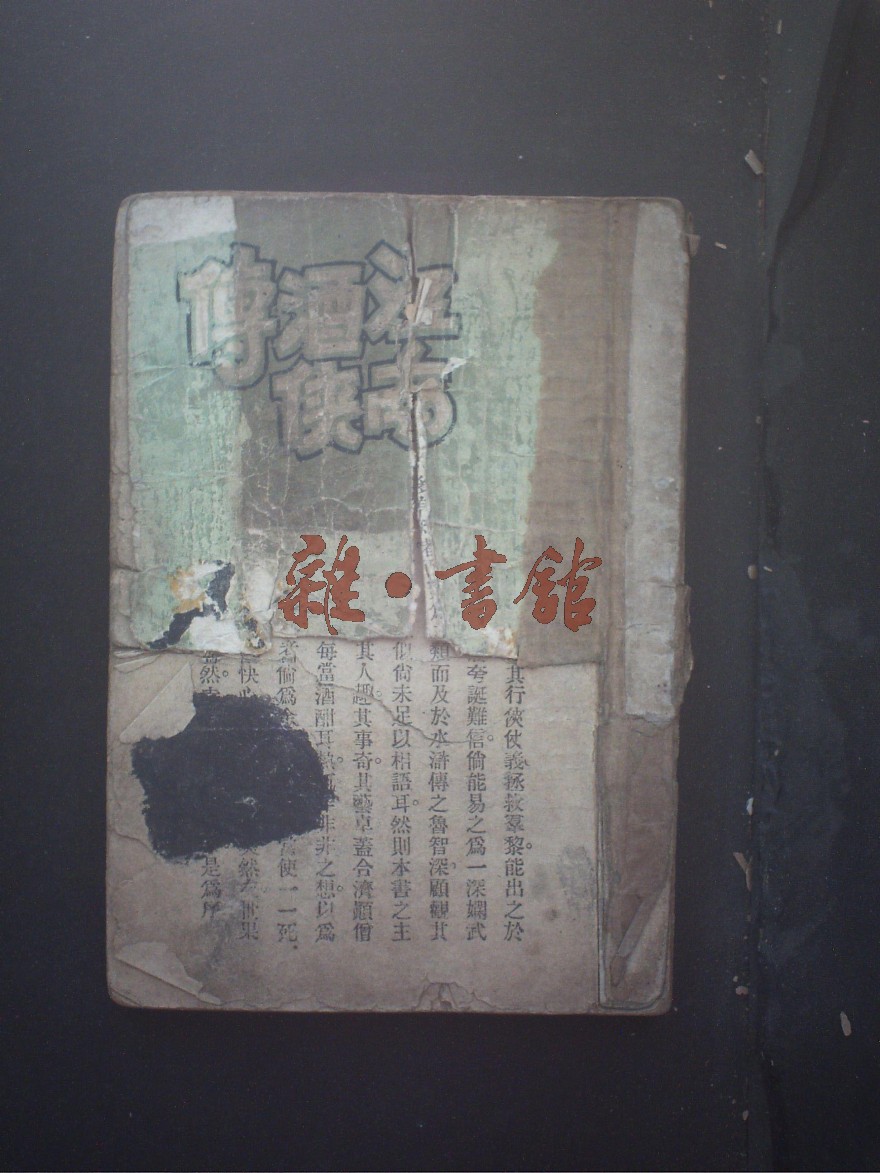 江南
酒俠
傳
雜·書館
其行俠仗義拯救羣黎。能出之於
夸誕難信。倘能易之爲一深嫻武
類而及於水滸傳之魯智深。顧觀其
似尚未足以相語耳。然則本書之主
其人趣。其事奇。其藝卓。蓋合濟顚僧
每當酒酣耳熱。非非之想。以爲
倘爲 使一一死
快 然 果
然 是爲序